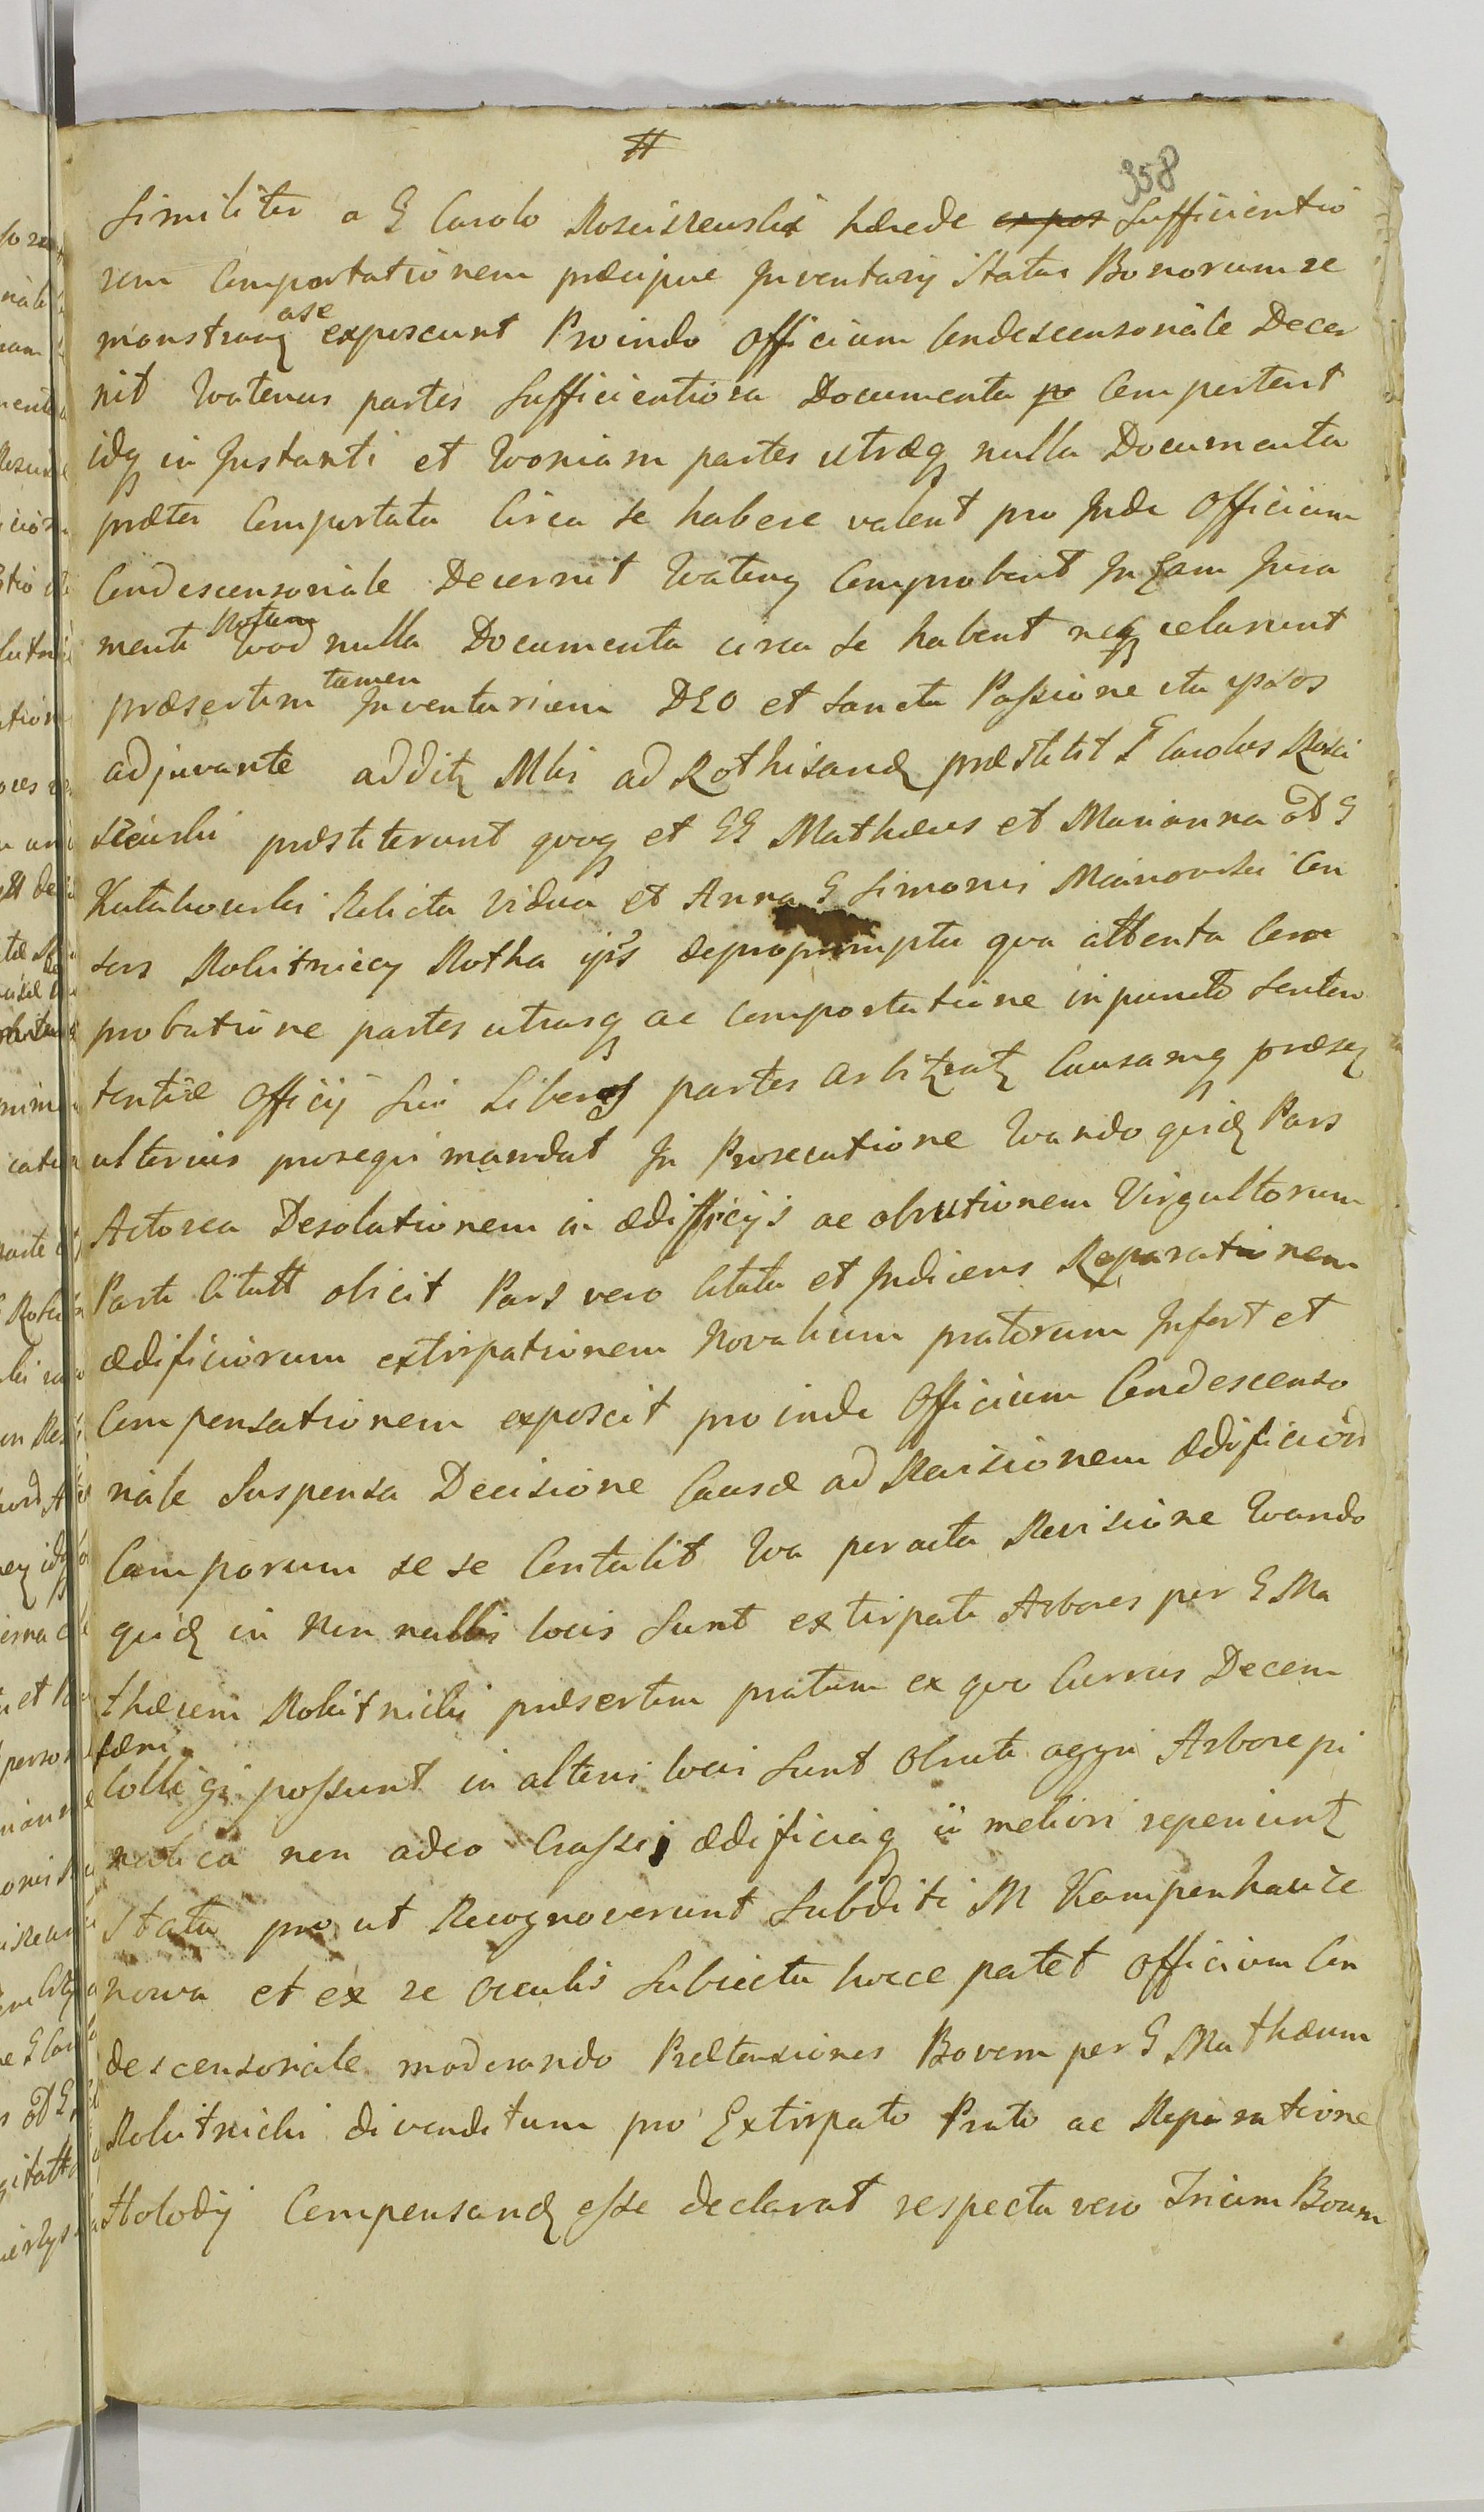 #
358
Similiter a G Carolo Rosciszewski hærede expos Sufficientio
rem Comportationem præcipue Inventarij Status Bonorum re
monstrang a se exposcunt Proinde Officium Condescensoriale Decer
nit Quatenus partes Sufficientiora Documenta po Comportent
idq in Instanti et Quoniam partes utræq nulla Documenta
præter Comportata Circa se habere valent pro Inde Officium
Condescensoriale Decernit Quateng Comprobent In Eam Jura
menti Rotam Quod nulla Documenta circa se habent neq celarunt
præsertim tamen Inventarium DEO et Sancta Passione ita ipsos
adjuvante addit Mli ad Rothisand præstitit G Carolus Rosci
szewski præstiterunt quoq et GG Mathæus et Marianna OD G
Kutakowski Relicta Vidua et Anna G Simonis Mainowski Con
sors Rokitniccy Rotha ips depropromptu qua attenta Com
probatione partes utrasq ac Comportatione in puncto Senten
tentiæ Officij Sui Liberas partes arbitratz Causamq præsen
ulterius prosequi mandat In Prosecutione Quando quid Pars
Actorea Desolationem in ædifficijs ac obrutionem Virgultorum
Parti Citatt obicit Pars vero Citata et Indicens Reparationem
ædificiorum extirpationem Novalium pratorum Infert et
Compensationem exposcit pro inde Officium Condescenso
riale Suspensa Decisione Causæ ad Revisionem ædificiord
Camporum se se Contulit Qua peracta Revisione Quando
quid in Non nullis locis Sunt extirpati Arbores per G Ma
thæum Rokitnicki præsertim pratum ex quo Currus Decem
fæni
Colligi possunt in alteri loci Sunt Obruti agri Arbore pi
natica non adeo Crassi, ædificiaq in meliori reperiuntz
Statu pro ut Recognoverunt Subditi M Kampenhauze
nowa et ex re Oculis Subiecta hocce patet Officium Con
descensoriale moderando Prætensiones Bovem per G Mathæum
Rokitnicki divenditum pro Extirpato Prato ac Reparatione
Stolody Compensand esse declarat respectu vero Trium Boum